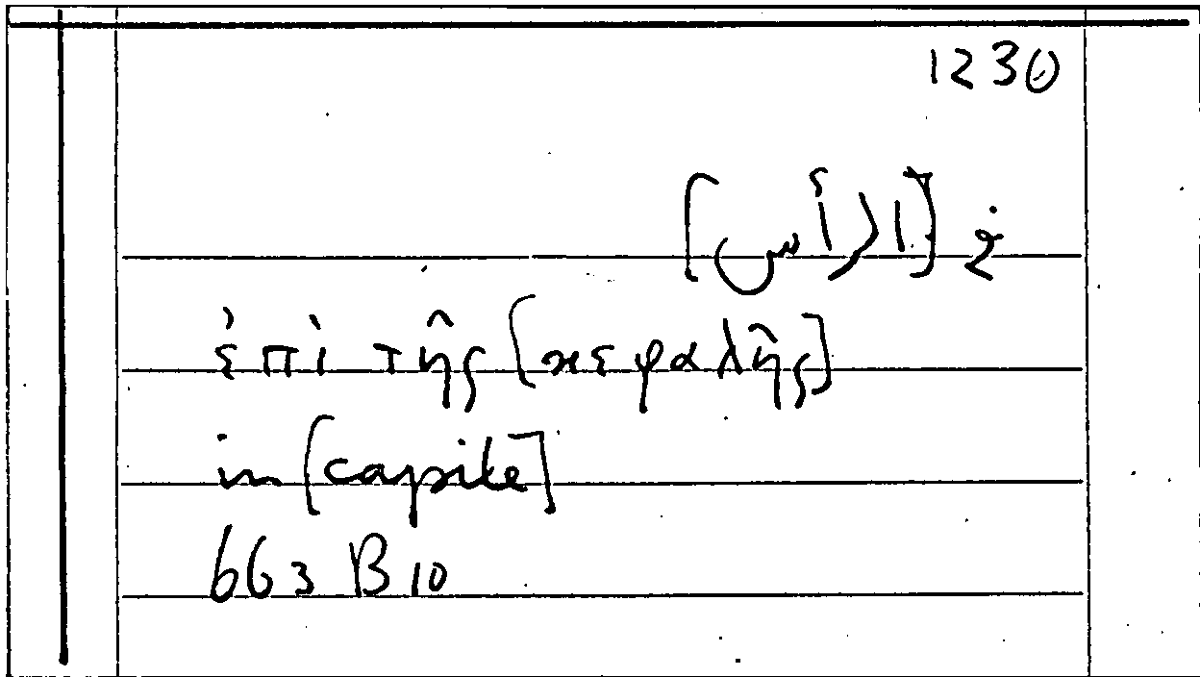 1230
في [الرأس]
ἐπὶ τῆς [κεφαλῆς]
in [capite]
663 B 10